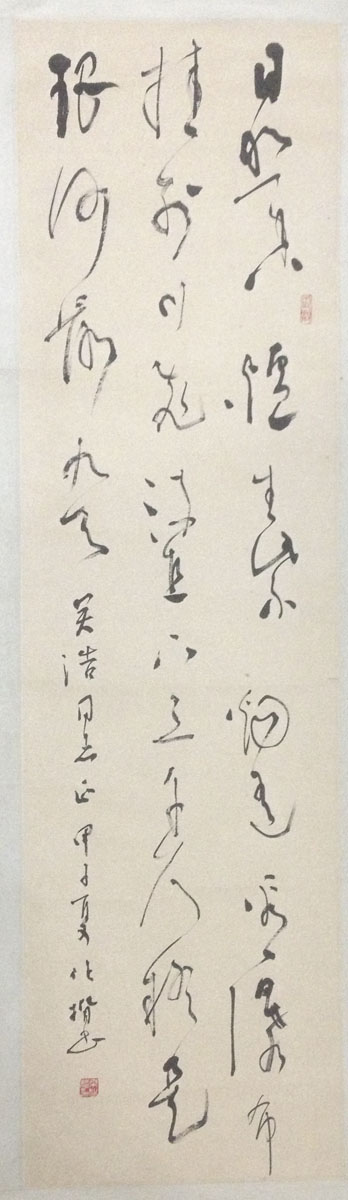 日照香爐生紫烟遥看瀑布
挂前川飛流直下三千尺疑是
銀河落九天 浩同志正 甲子夏